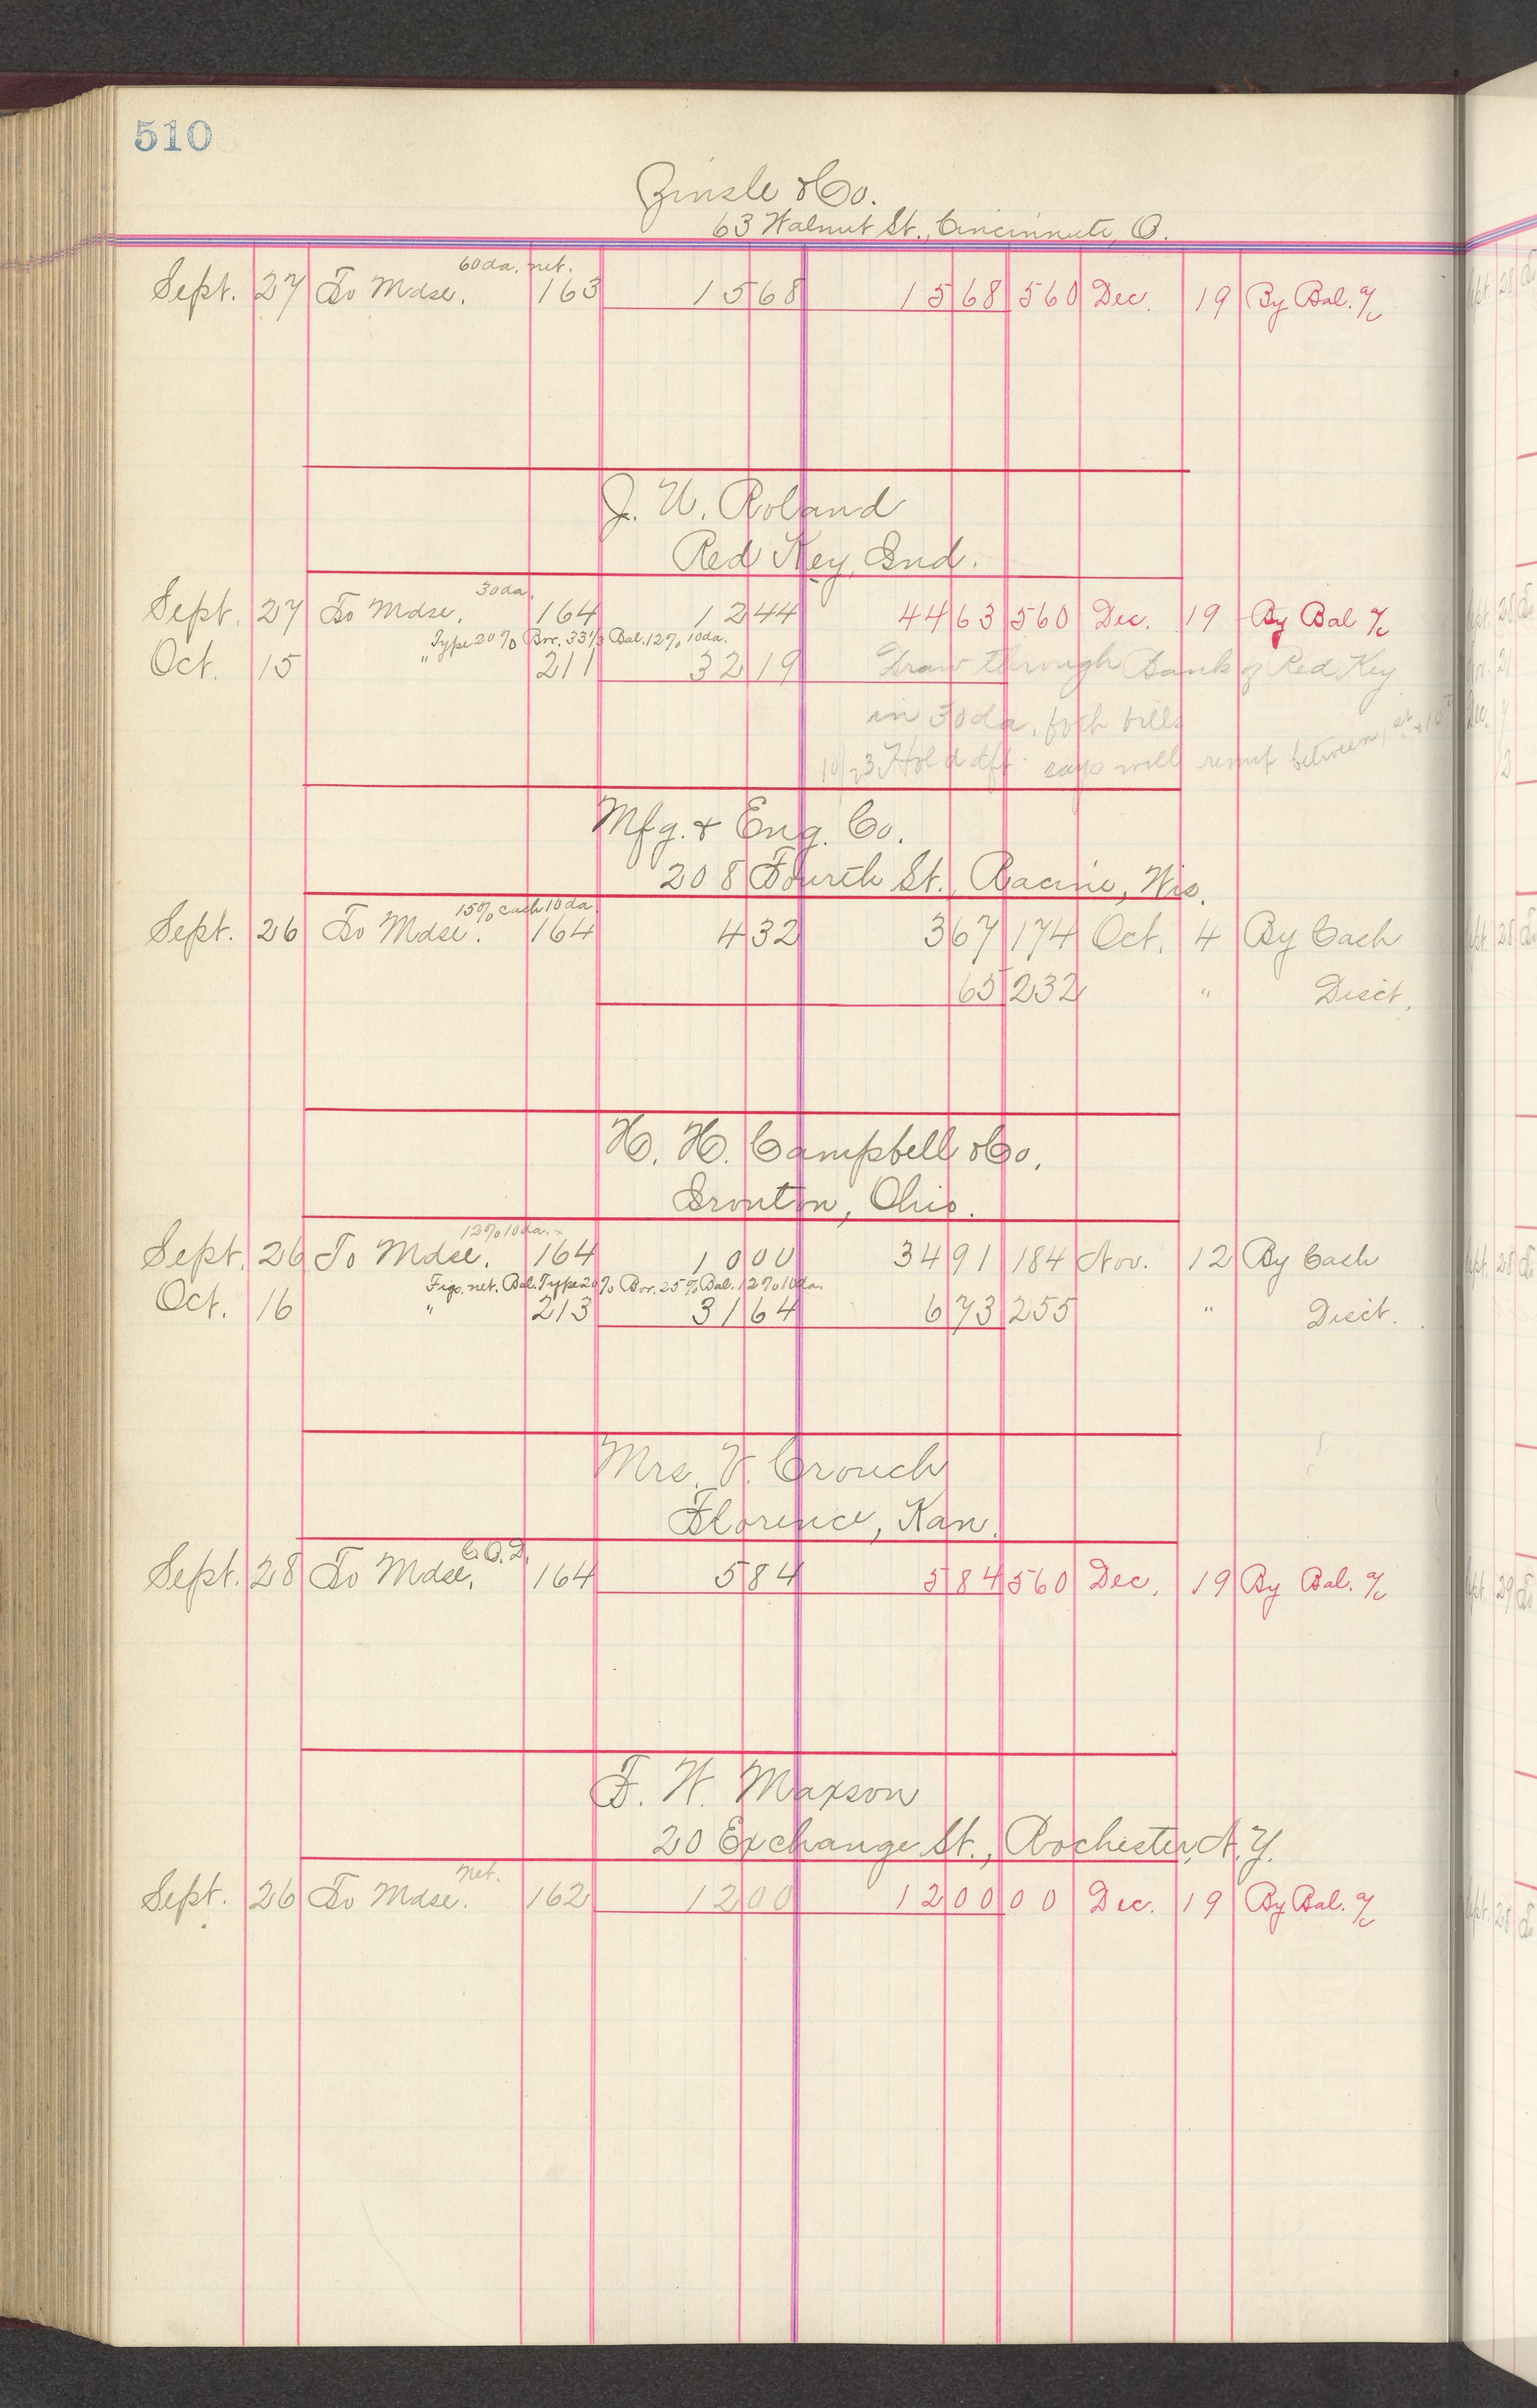 510
Zinsle & Co.
63 Walnut St., Cincinnati, O.
60 da. net.
Sept. 27 To Mdse. 163 15 68 15 68 560 Dec. 19 By Bal. a/c
J. W. Roland
Red Key, Ind.
30 da.
Sept. 27 To Mdse. 164 12 44 44 63 560 Dec. 19 By Bal a/c
Type 20% Bor. 33 1/3 Bal. 12% 10 da.
Oct. 15 " 211 32 19 Draw through Bank of Red Key
in 30 da. for bills
10/23 Hold dft. says will remit between 1st + 10th
Mfg. & Eng. Co.
208 Fourth St., Racine, Wis.
15% cash 10 da
Sept. 26 To Mdse. 164 4 32 3 67 174 Oct. 4 By Cash
65 232 " Disct.
H. H. Campbell & Co.
Ironton, Ohio.
12% 10 da.
Sept. 26 To Mdse. 164 10 00 34 91 184 Nov. 12 By Cash
Figs. net. Bal. Type 20% Bor. 25% Bal. 12% 10 da.
Oct. 16 " 213 31 64 6 73 255 " Disct.
Mrs. V. Crouch
Florence, Kan.
C. O. D.
Sept. 28 To Mdse. 164 5 84 5 84 560 Dec. 19 By Bal. a/c
F. W. Maxson
20 Exchange St., Rochester, N. Y.
net.
Sept. 26 To Mdse. 162 12 00 12 00 00 Dec. 19 By Bal. a/c